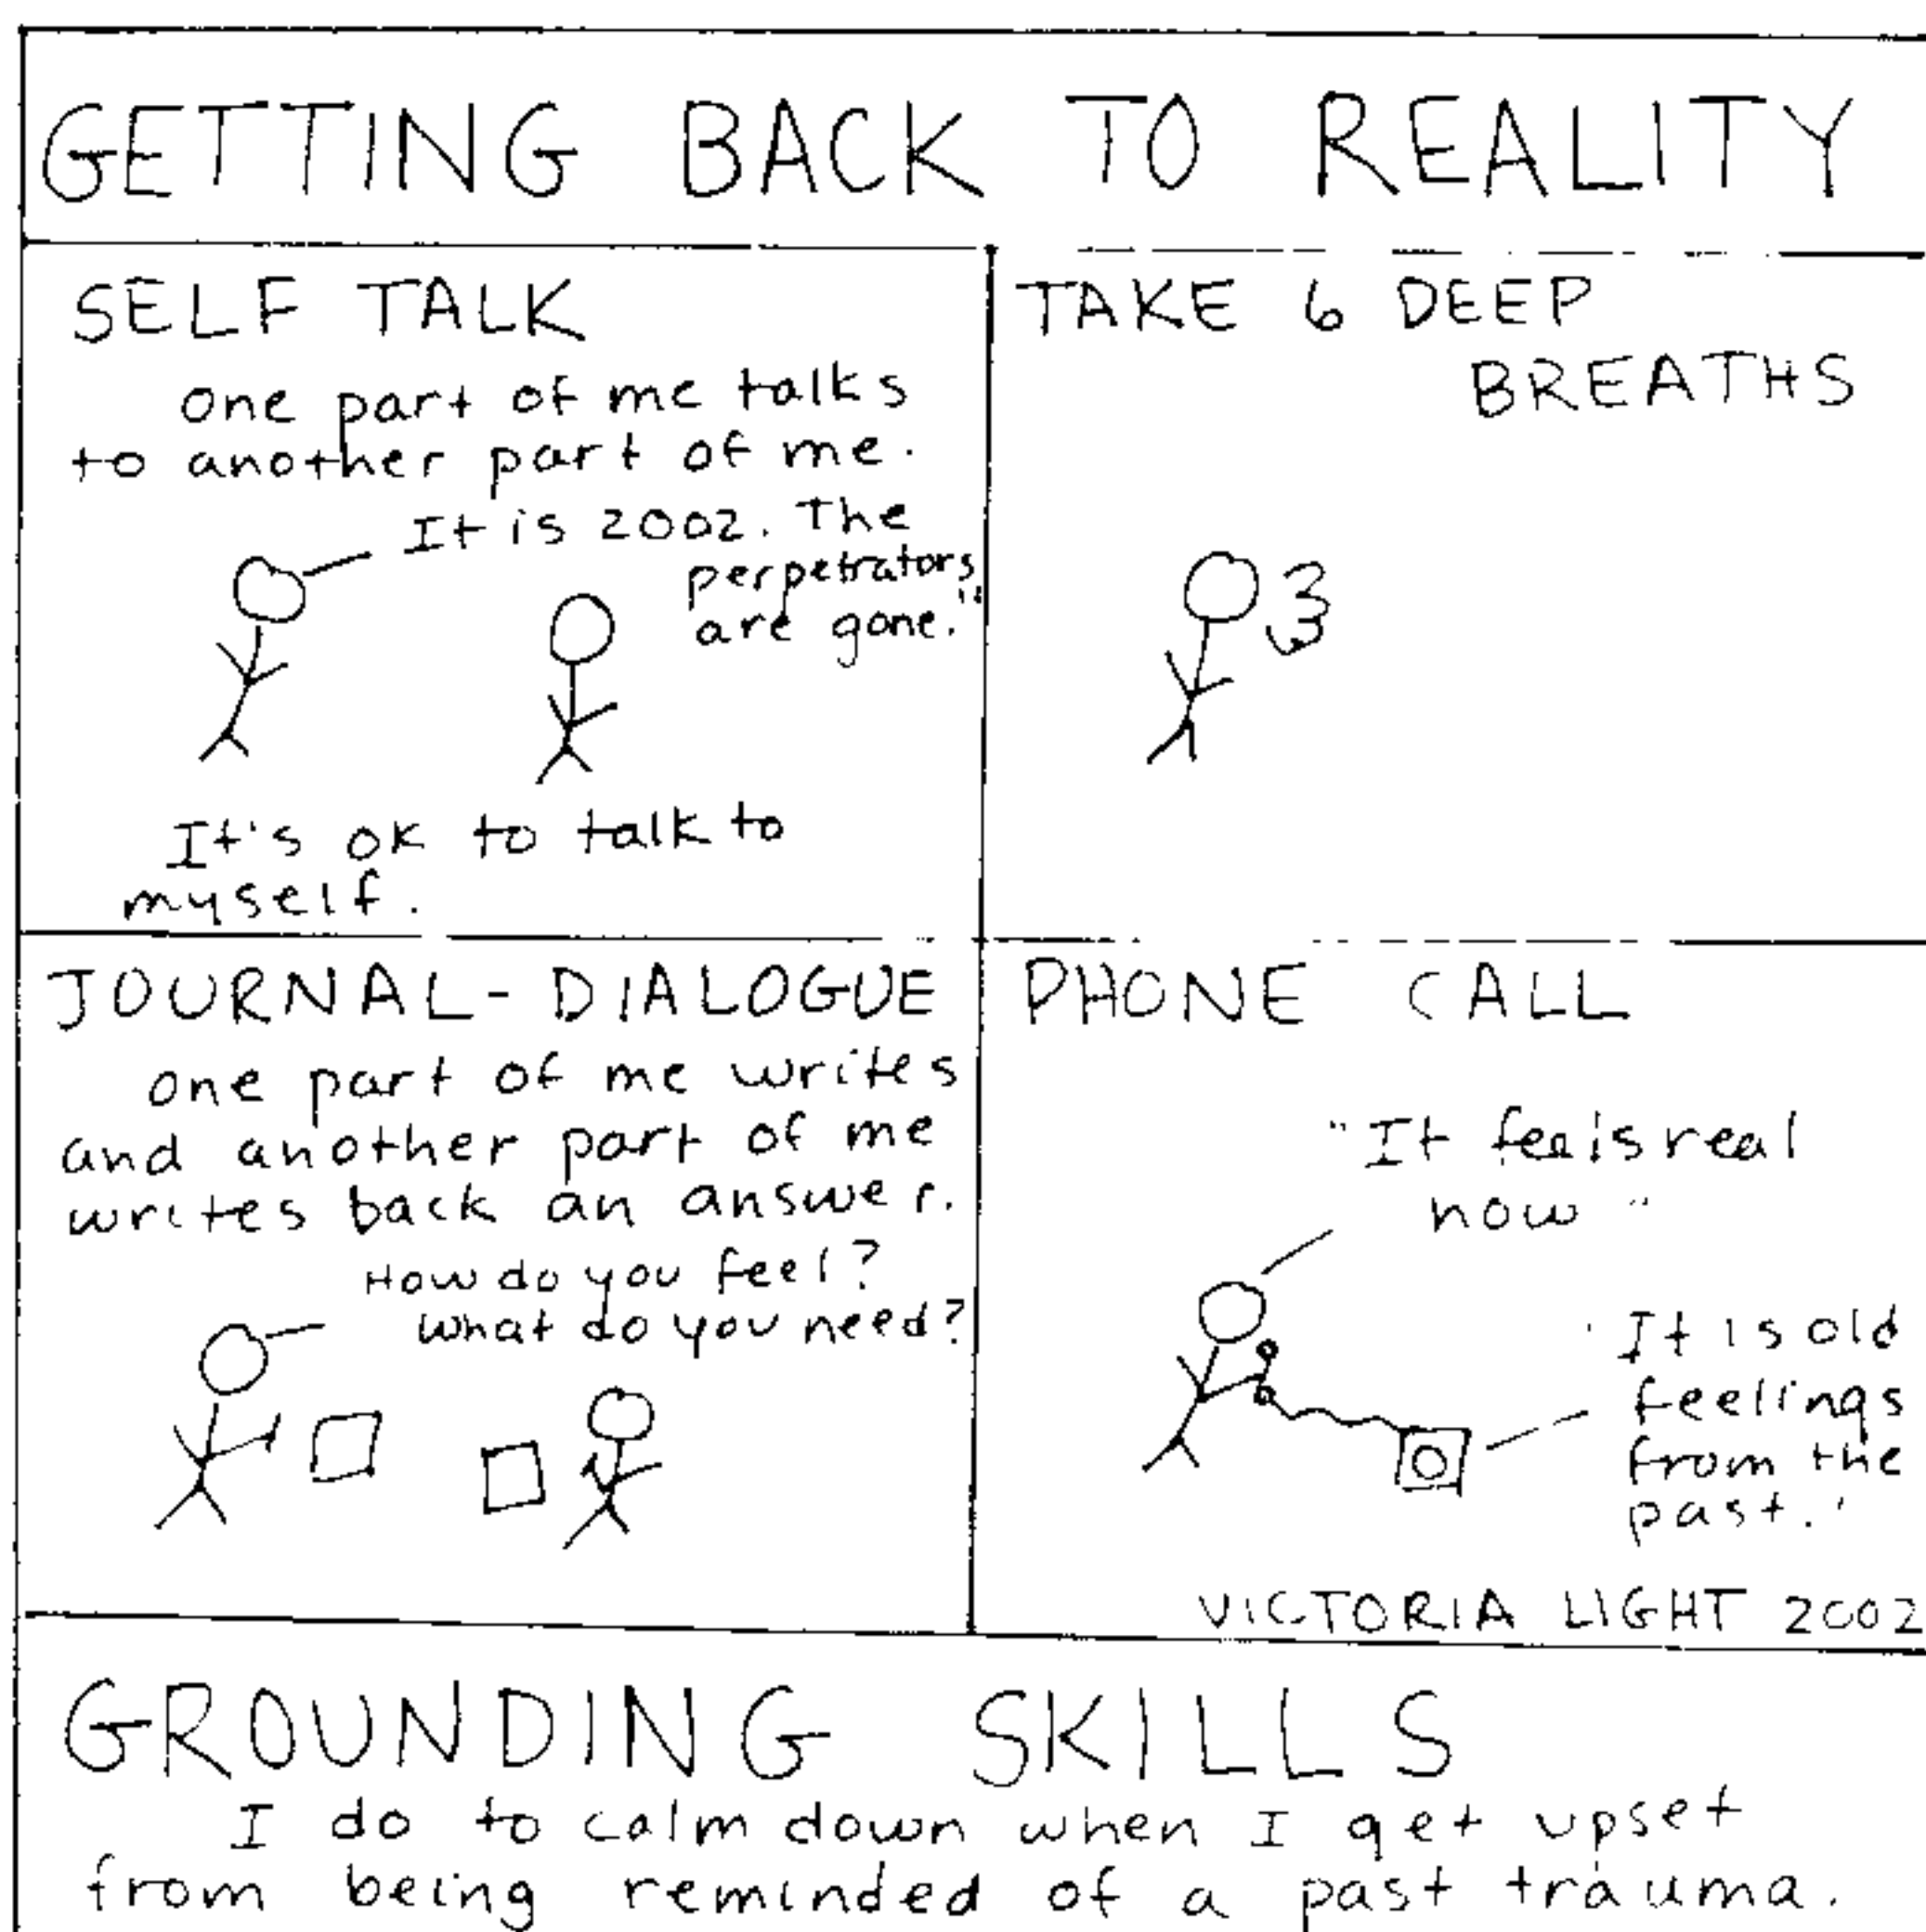 GETTING BACK TO REALITY
SELF TALK
One part of me talks
to another part of me.
It is 2002. The
perpetrators
are gone."
It's ok to talk to
myself.
TAKE 6 DEEP
BREATHS
JOURNAL - DIALOGUE
One part of me writes
and another part of me
writes back an answer.
How do you feel?
What do you need?
PHONE CALL
"It feels real
now"
"It is old
feelings
from the
past."
VICTORIA LIGHT 2002
GROUNDING SKILLS
I do to calm down when I get upset
from being reminded of a past trauma.